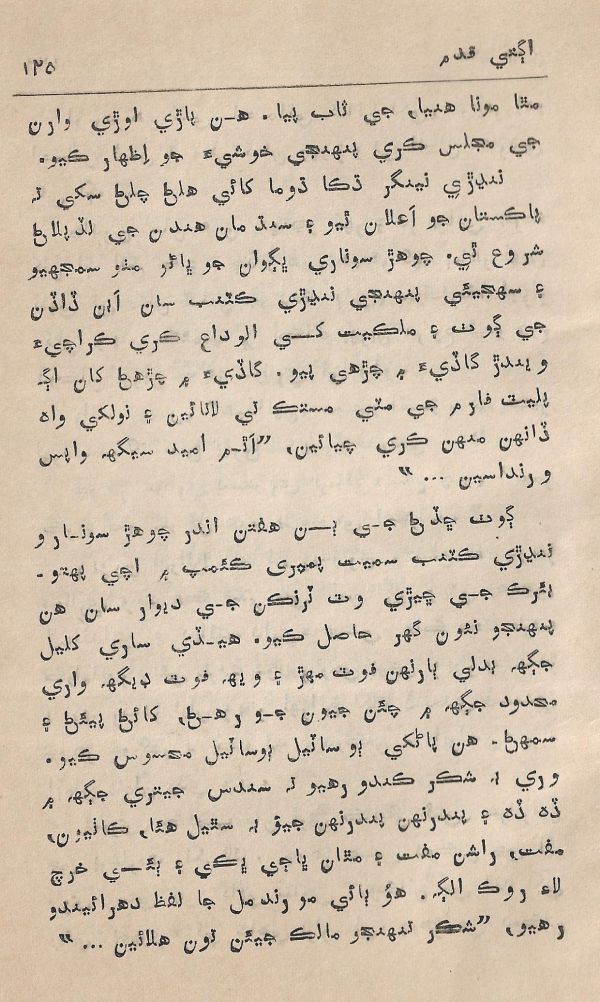 اڳتي قدم
١٢٥
مٿا مونا هنيا، جي ثاب پيا. هـن پاڙي اوڙي وارن
جي مجلس ڪري پنهنجي خوشيءَ جو اِظهار ڪيو.
ننڍڙي نينگر ڌڪا ڌوما کائي هلڻ چلڻ سکي تہ
پاڪستان جو اَعلان ٿيو ۽ سنڌ مان هندن جي لڏپلاڻ
شروع ٿي. چوهڙ سوناري ڀڳوان جو ڀاڻو مٺو سمجهيو
۽ سهجيئي پنهنجي ننڍڙي ڪٽنب سان اَبن ڏاڏن
جي ڳوٺ ۽ ملڪيت کـي الوداع ڪري ڪراچيءَ
ويندڙ گاڏيءَ ۾ چڙهي پيو. گاڏيءَ ۾ چڙهڻ کان اڳہ
پليٽ فارم جي مٽي مستڪ تي لاتائين ۽ نولکي واه
ڏانهن منهن ڪري چيائين، ”اَٿـم اميد سيگهہ واپس
ورنداسين ... “
ڳوٺ ڇڏڻ جـي ٻـن هفتن اندر چوهڙ سونـارو
ننڍڙي ڪٽنب سميت پمپري ڪئمپ ۾ اچي پهتو.
بئرڪ جـي ڇيڙي وٽ ٽرنڪن جـي ديوار سان هن
پنهنجو نئون گهر حاصل ڪيو. هيـڏي ساري کليل
جڳهہ بدلي ٻارنهن فوٽ مهڙ ۽ ويهہ فوٽ ڊيگهہ واري
محدود جڳهہ ۾ ڇئن جيون جـو رهـڻ، کائڻ پيئڻ ۽
سمهڻ. هن پاڻکي ٻوساٽيل ٻوساٽيل محسوس ڪيو.
وري بہ شڪر ڪندو رهيو تہ سندس جيتري جڳهہ ۾
ڏه ڏه ۽ پندرنهن پندرنهن جيوَ بہ سٿيل هئا، ڪاٺيون،
مفت، راشن مفت ۽ مٿان ڀاڄي ڀڪي ۽ ٻئـي خرچ
لاءِ روڪ الڳہ. هوُ ڀائي مورندمل جا لفظ دهرائيندو
رهيو، ”شڪر تنهنجو مالڪ جيئن تون هلائين ... “